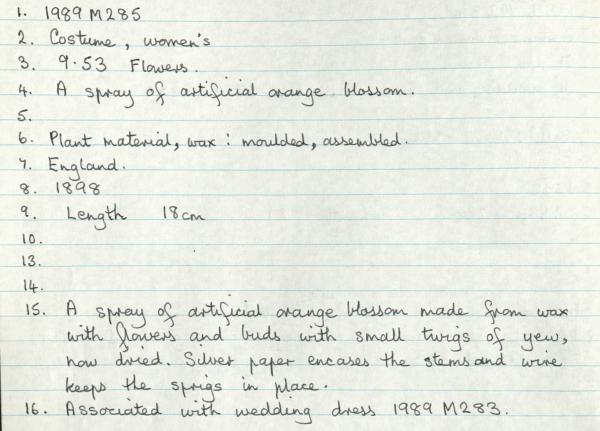 1. 1989 M285
2. Costume, women's
3. 9.53 Flowers.
4. A spray of artificial orange blossom.
5.
6. Plant material, wax : moulded, assembled.
7. England.
8. 1898
9. Length 18cm
10.
13.
14.
15. A spray of artificial orange blossom made from wax
with flowers and buds with small twigs of yew,
now dried. Silver paper encases the stems and wire
keeps the sprigs in place.
16. Associated with wedding dress 1989 M283.